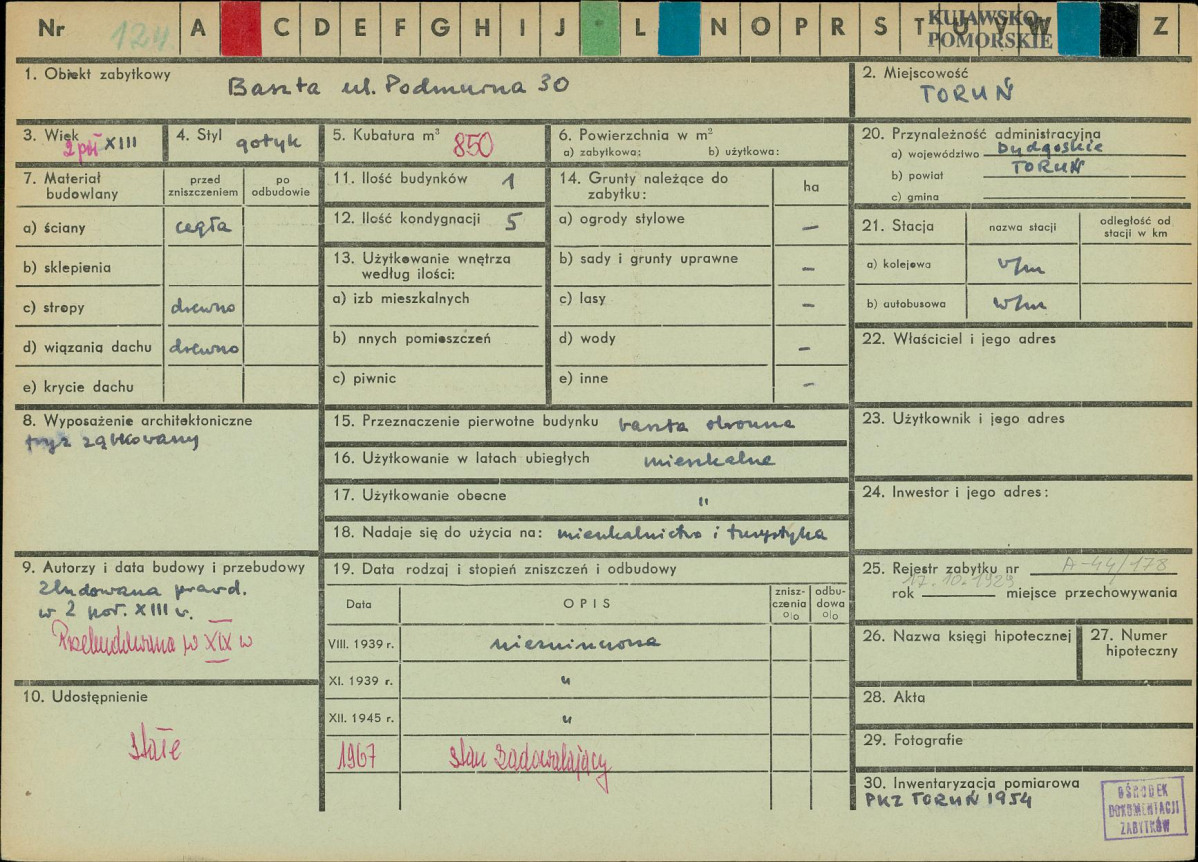 Nr 124 A C D E F G H I J L N O P R S T U V W Z
KUJAWSKO-
POMORSKIE
1. Obiekt zabytkowy
Baszta ul. Podmurna 30
2. Miejscowość
TORUŃ
3. Wiek
2 poł XIII
4. Styl gotyk
5. Kubatura m³ 850
6. Powierzchnia w m²
a) zabytkowa: b) użytkowa:
20. Przynależność administracyjna
a) województwo bydgoskie
b) powiat TORUŃ
c) gmina
7. Materiał budowlany
przed zniszczeniem
po odbudowie
a) ściany cegła
b) sklepienia
c) stropy drewno
d) wiązania dachu drewno
e) krycie dachu
11. Ilość budynków 1
12. Ilość kondygnacji 5
13. Użytkowanie wnętrza
według ilości:
a) izb mieszkalnych
b) nnych pomieszczeń
c) piwnic
14. Grunty należące do
zabytku:
ha
a) ogrody stylowe –
b) sady i grunty uprawne –
c) lasy –
d) wody –
e) inne –
21. Stacja
nazwa stacji
odległość od
stacji w km
a) kolejowa w/m
b) autobusowa w/m
22. Właściciel i jego adres
8. Wyposażenie architektoniczne
fryz ząbkowany
15. Przeznaczenie pierwotne budynku baszta obronna
16. Użytkowanie w latach ubiegłych mieszkalne
17. Użytkowanie obecne "
18. Nadaje się do użycia na: mieszkalnictwo i turystyka
23. Użytkownik i jego adres
24. Inwestor i jego adres:
9. Autorzy i data budowy i przebudowy
Zbudowana prawd.
w 2 poł. XIII w.
Przebudowana w XIX w
19. Data rodzaj i stopień zniszczeń i odbudowy
Data
OPIS
znisz-
czenia
%
odbu-
dowa
%
VIII. 1939 r. niezniszczona
XI. 1939 r. "
XII. 1945 r. "
1967 stan zadowalający
25. Rejestr zabytku nr A-44/178
17.10.1929
rok miejsce przechowywania
26. Nazwa księgi hipotecznej
27. Numer
hipoteczny
10. Udostępnienie
stałe
28. Akta
29. Fotografie
30. Inwentaryzacja pomiarowa
PKZ TORUŃ 1954
OŚRODEK
DOKUMENTACJI
ZABYTKÓW